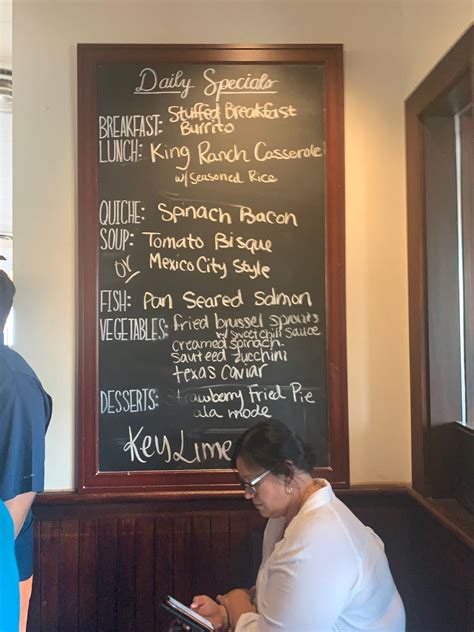 Daily Specials
Stuffed Breakfast
BREAKFAST: Burrito
LUNCH: King Ranch Casserole
w/ Seasoned Rice
QUICHE: Spinach Bacon
SOUP: Tomato Bisque
or Mexico City Style
FISH: Pan Seared Salmon
VEGETABLES: fried brussel sprouts
w/ sweet chili sauce
creamed spinach
sauteed zucchini
texas caviar
DESSERTS: Strawberry Fried Pie
ala mode
Key Lime